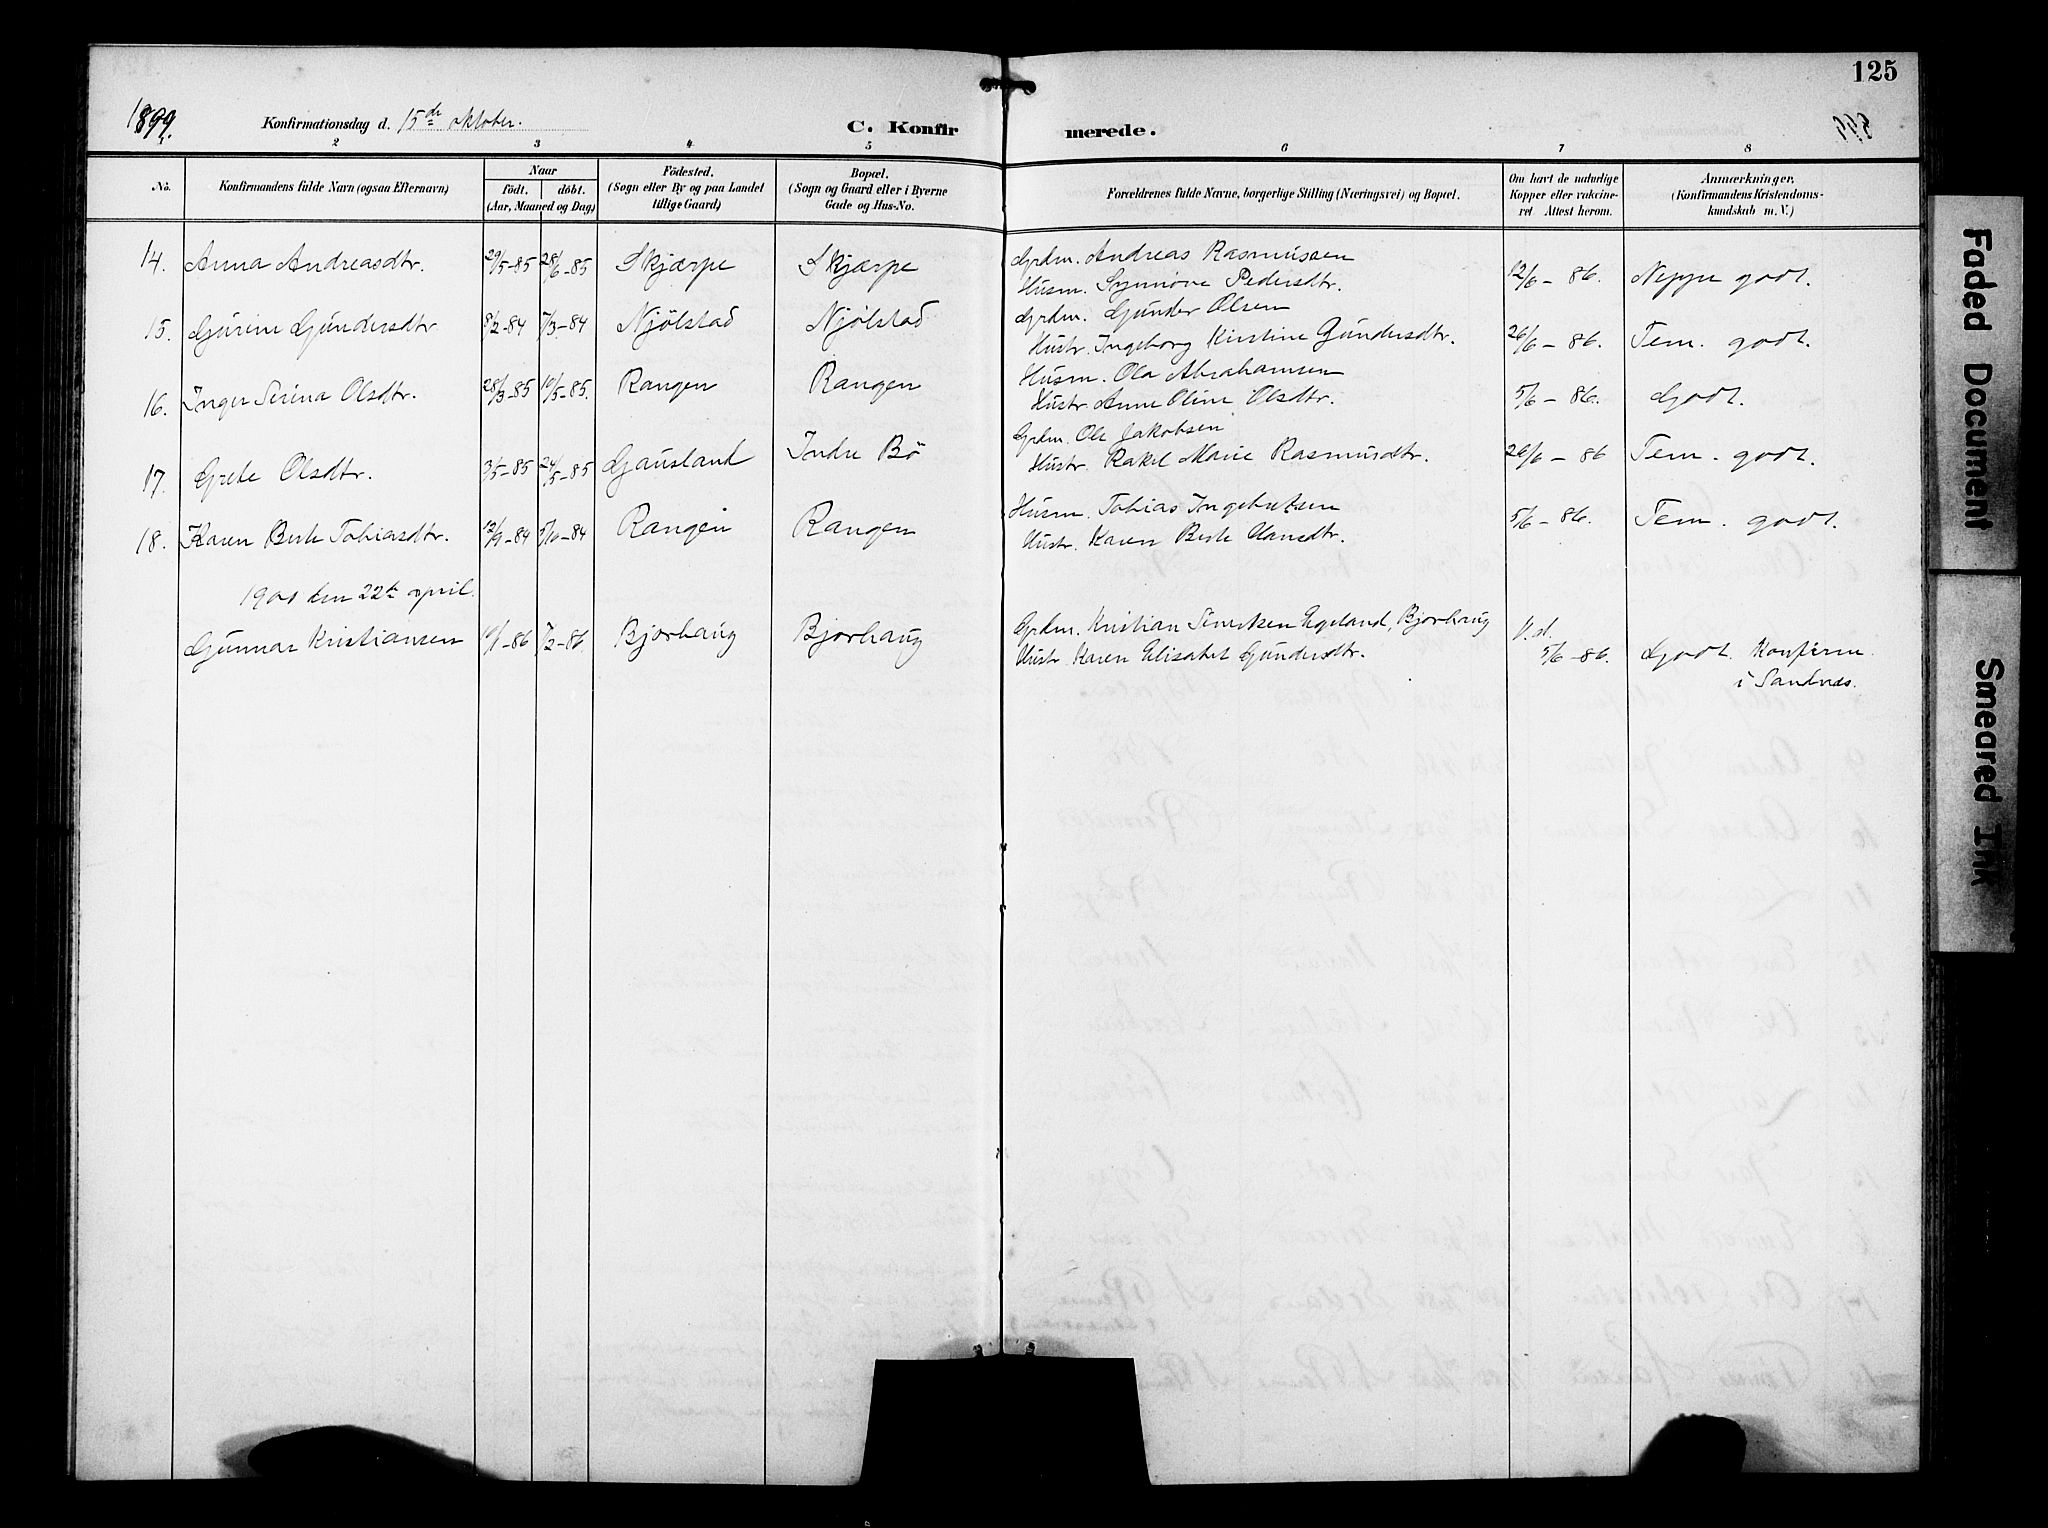 125
1899. Konfirmationsdag d. 15de oktober. C. Konfirmerede.
2 3 4 5 6 7 8
No. Konfirmandens fulde Navn (ogsaa Efternavn) Naar födt. döbt. (Aar, Maaned og Dag) Födested. (Sogn eller By og paa Landet tillige Gaard) Bopæl. (Sogn og Gaard eller i Byerne Gade og Hus-No. Forældrenes fulde Navne, borgerlige Stilling (Næringsvei) og Bopæl. Om havt de naturlige Kopper eller vakcineret Attest herom. Anmærkninger. (Konfirmandens Kristendomskundskab m. V.)
14. Anna Andreasdtr. 29/5-85 28/6-85 Skjærpe Skjærpe Grdm. Andreas Rasmussen
Husm. Synnöve Pedersdtr. 12/6-86. Neppe godt.
15. Gurine Gundersdtr 8/2-84 7/3-84 Njölstad Njölstad Grdm. Gunder Olsen
Hustr. Ingeborg Kirstine Gundersdtr. 26/6-86. Tem. godt.
16. Inger Serina Olsdtr. 28/3-85 10/5-85. Rangen Rangen Husm. Ola Abrahamsen
Hustr. Anne Oline Olsdtr. 5/6-86. Godt.
17. Grete Olsdtr. 3/5-85 24/5-85 Gausland Indre Bö Grdm. Ole Jakobsen
Hustr. Rakel Marie Rasmusdtr. 26/6-86 Tem. godt.
18. Karen Berte Tobiasdtr. 12/9-84 5/10-84 Rangen Rangen Husm. Tobias Ingebretsen
Hustr. Karen Berte Hansdtr. 5/6-86. Tem. godt.
den 22de april.
Gunnar Kristiansen 10/1-86 7/2-86. Bjorhaug Bjorhaug Grdm. Kristian Egeland, Bjorhaug
Hustr. Karen Elisabet Gundersdtr. 5/6-86. Godt. Konfirm.
i Sandnes.
Faded Document
Smeared Ink